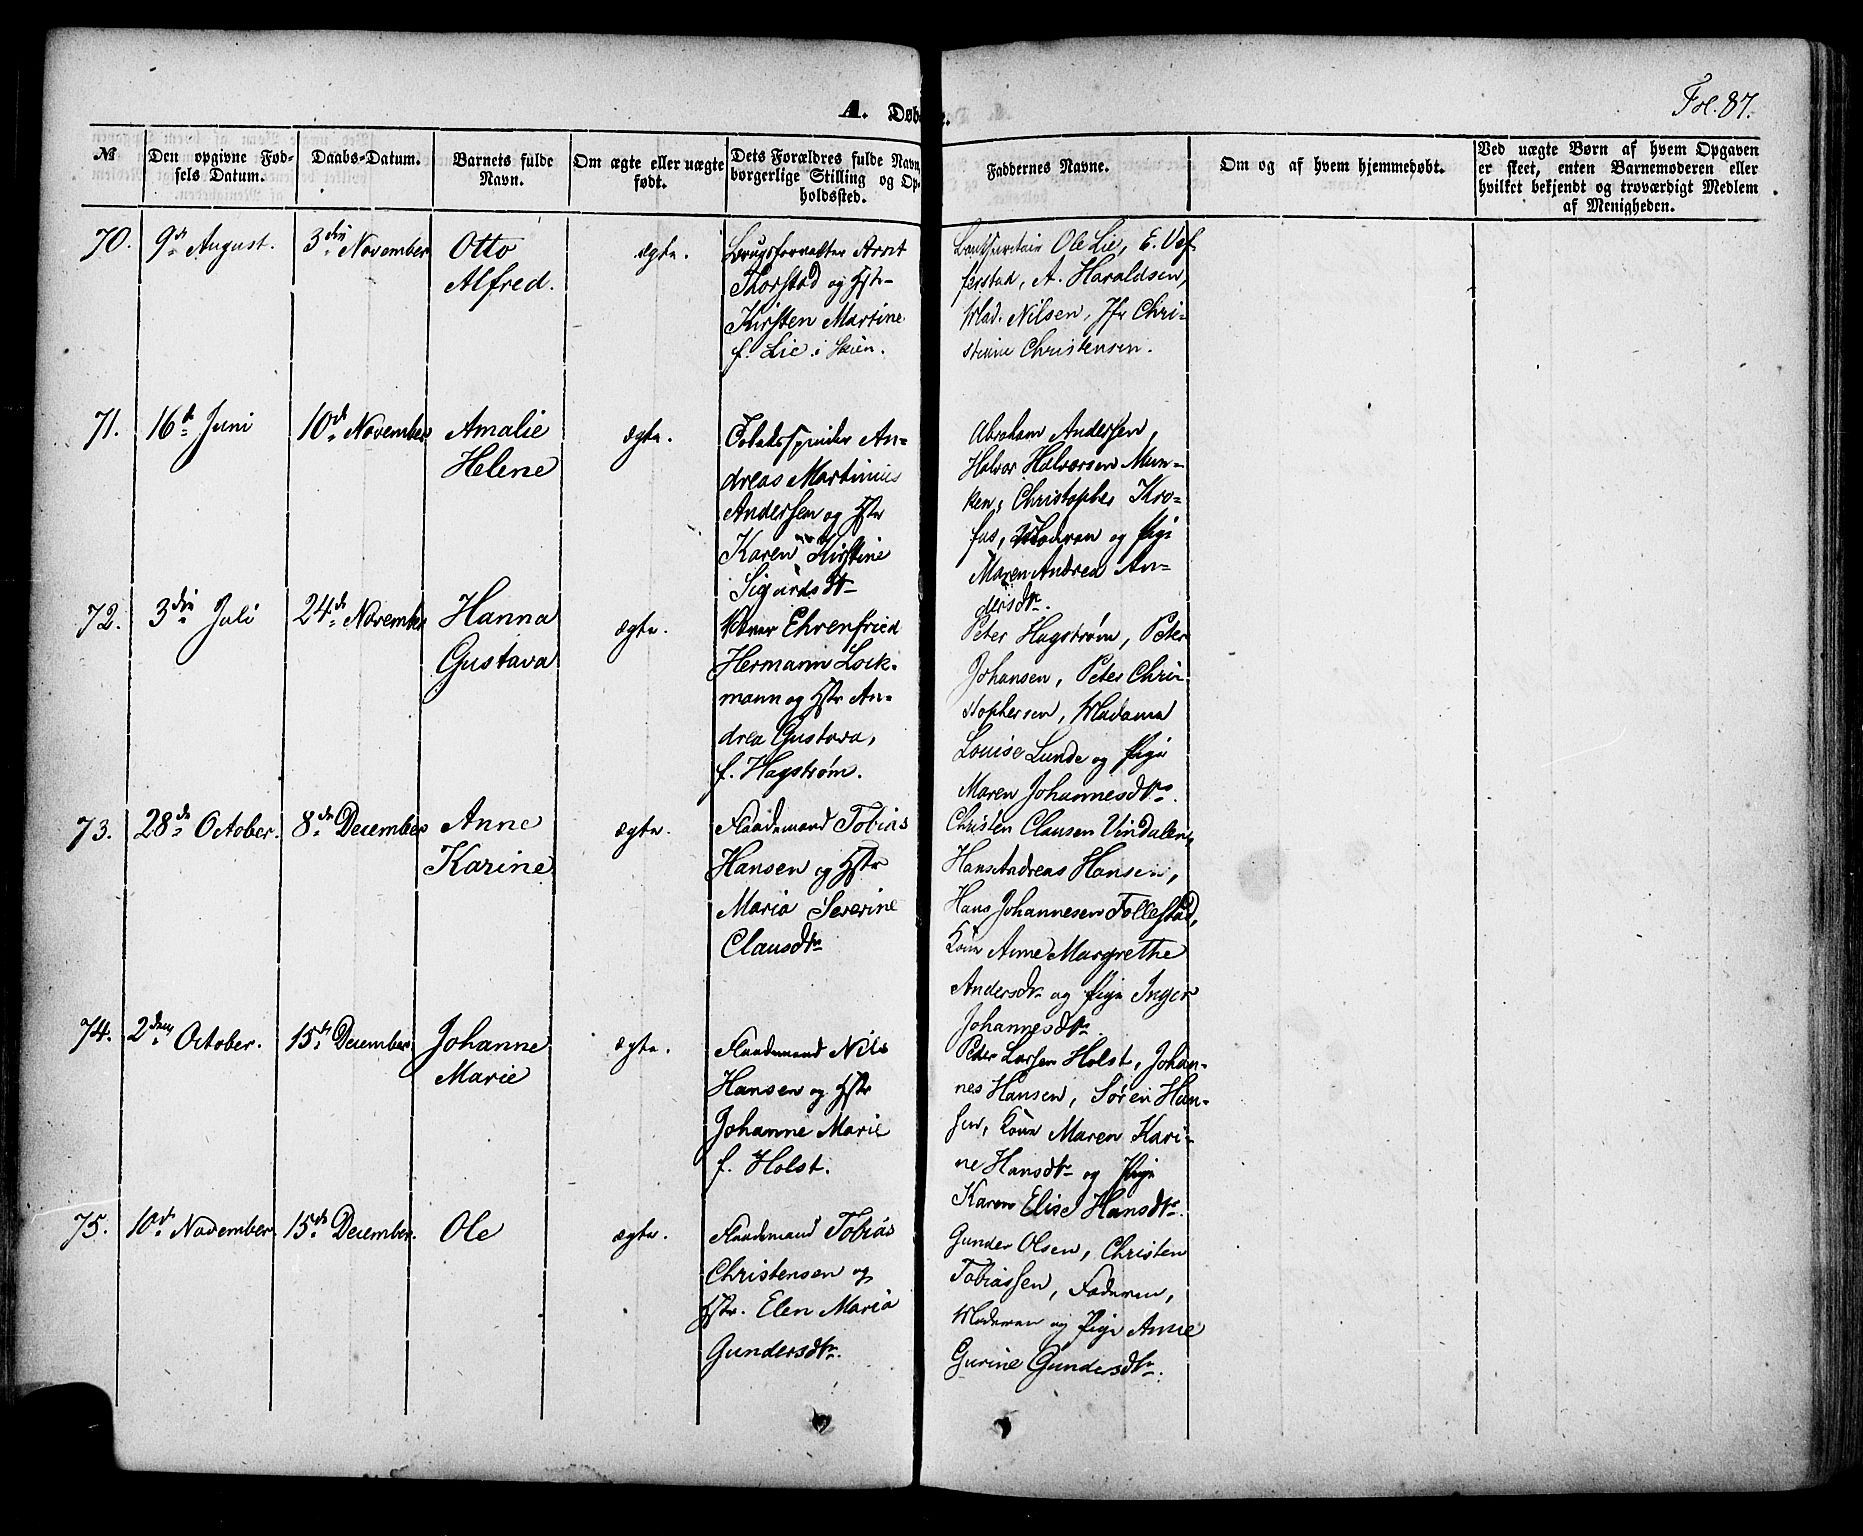 Fol. 87.
A. Døbte.
№
Den opgivne Fød-
sels Datum.
Daabs-Datum.
Barnets fulde
Navn.
Om ægte eller uægte
født.
Dets Forældres fulde Navn,
borgerlige Stilling og Op-
holdssted.
Faddernes Navne.
Om og af hvem hjemmedøbt.
Ved uægte Børn af hvem Opgaven
er skeet, enten Barnemoderen eller
hvilket bekjendt og troværdigt Medlem
af Menigheden.
70.
9de August.
3die November
Otto
Alfred.
ægte.
Brugsforvalter Arnt
Thorstad og Hstr
Kirsten Martine
f. Lie i Skien.
Ole Lie, E. Vef-
ferstad, A. Haraldsen,
Mad. Nilsen, Jfr Chri-
stine Christensen.
71.
16de Juni
10de November
Amalie
Helene
ægte.
Tobaksspinder An-
dreas Martinius
Andersen og Hstr
Karen Kirstine
Sigurdsdtr
Abraham Andersen,
Halvor Halvorsen Mun-
ken, Christopher Kro-
fus, Moderen og Pige
Maren Andrea An-
dersdtr.
72.
3die Juli
24de November
Hanna
Gustava
ægte.
Ehrenfried
Hermann Lock-
mann og Hstr An-
drea Gustava,
f. Hagstrøm.
Peter Hagstrøm, Peter
Johansen, Peter Chri-
stophersen, Madame
Louise Lunde og Pige
Maren Johannesdtr.
73.
28de October.
8de December
Anne
Karine
ægte.
Flaademand Tobias
Hansen og Hstr
Maria Severine
Clausdtr
Christen Clausen Vindalen,
Hans Andreas Hansen,
Hans Johannesen Follestad,
Kone Anne Margrethe
Andersdtr og Pige Inger
Johannesdtr.
74.
2den October.
15de December
Johanne
Marie
ægte.
Flaademand Nils
Hansen og Hstr
Johanne Marie
f. Holst.
Peder Larsen Holst, Johan-
nes Hansen, Søren Han-
sen, Kone Maren Kari-
ne Hansdtr og Pige
Karen Elise Hansdtr.
75.
10de November
15de December.
Ole
ægte.
Flaademand Tobias
Christensen og
Hstr. Elen Maria
Gundersdtr.
Gunder Olsen, Christen
Tobiassen, Faderen,
Moderen og Pige Anne
Gurine Gundersdtr.